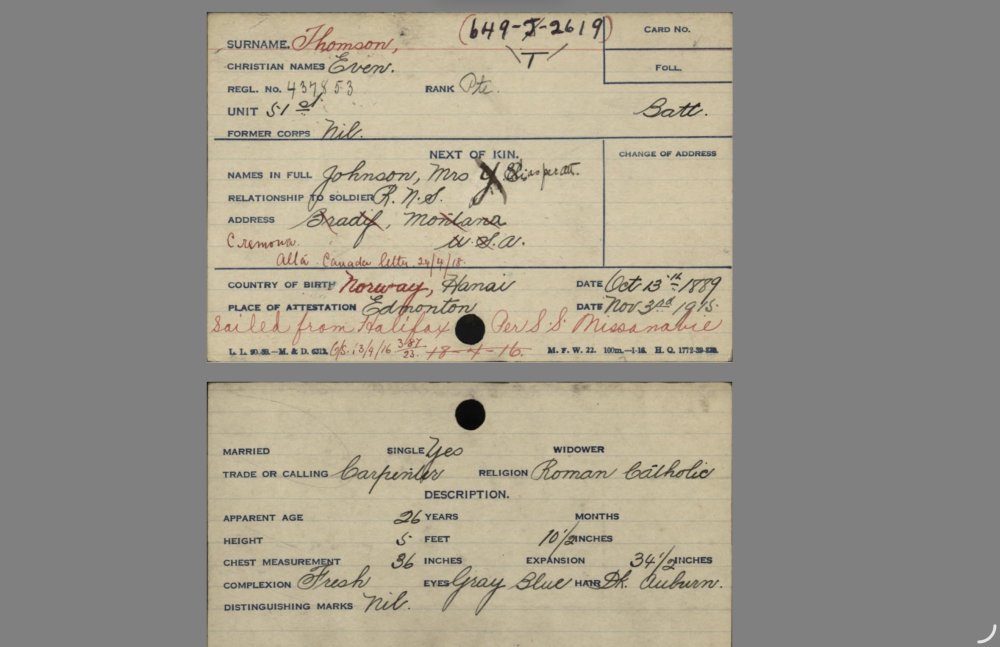 (649-J-2619)
T
SURNAME. Thomson,
CARD NO.
CHRISTIAN NAMES Even.
FOLL.
REGL. NO. 437853 RANK Pte.
UNIT 51st Batt.
FORMER CORPS Nil.
NEXT OF KIN.
CHANGE OF ADDRESS
NAMES IN FULL Johnson, Mrs
RELATIONSHIP TO SOLDIER R.N.S.
ADDRESS Brady, Montana
Cremona. U.S.A.
Alta Canada letter 24/4/18.
COUNTRY OF BIRTH Norway, Hanai DATE Oct 13th 1889
PLACE OF ATTESTATION Edmonton DATE Nov 3rd 1915.
Sailed from Halifax Per S.S. Missanabie
L. L. 90.39.—M. & D. 6313. G/S. 13/9/16 3/87/23. 18-4-16. M. F. W. 22. 100m.—1-16. H. Q. 1772-39-839.
MARRIED SINGLE Yes WIDOWER
TRADE OR CALLING Carpenter RELIGION Roman Catholic
DESCRIPTION.
APPARENT AGE 26 YEARS MONTHS
HEIGHT 5 FEET 10 1/2 INCHES
CHEST MEASUREMENT 36 INCHES EXPANSION 34 1/2 INCHES
COMPLEXION Fresh EYES Gray Blue HAIR Dk. Auburn.
DISTINGUISHING MARKS Nil.